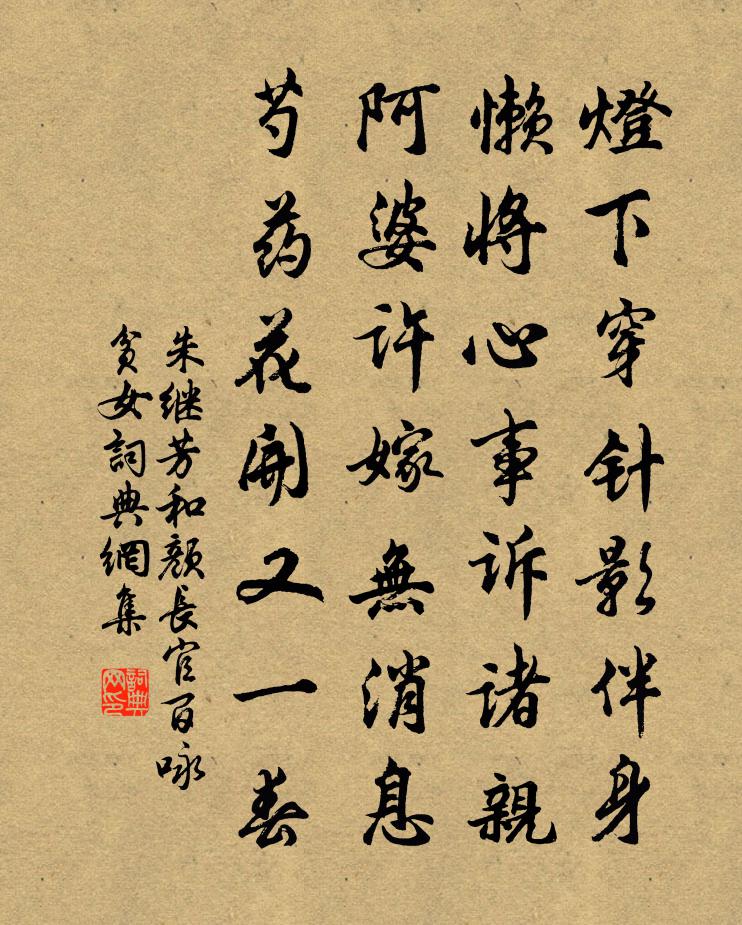 燈下穿针影伴身
懒將心事诉诸親
阿婆许嫁無消息
芍药花開又一春
朱继芳和颜長官百咏
貧女詞典網集
詞典网印